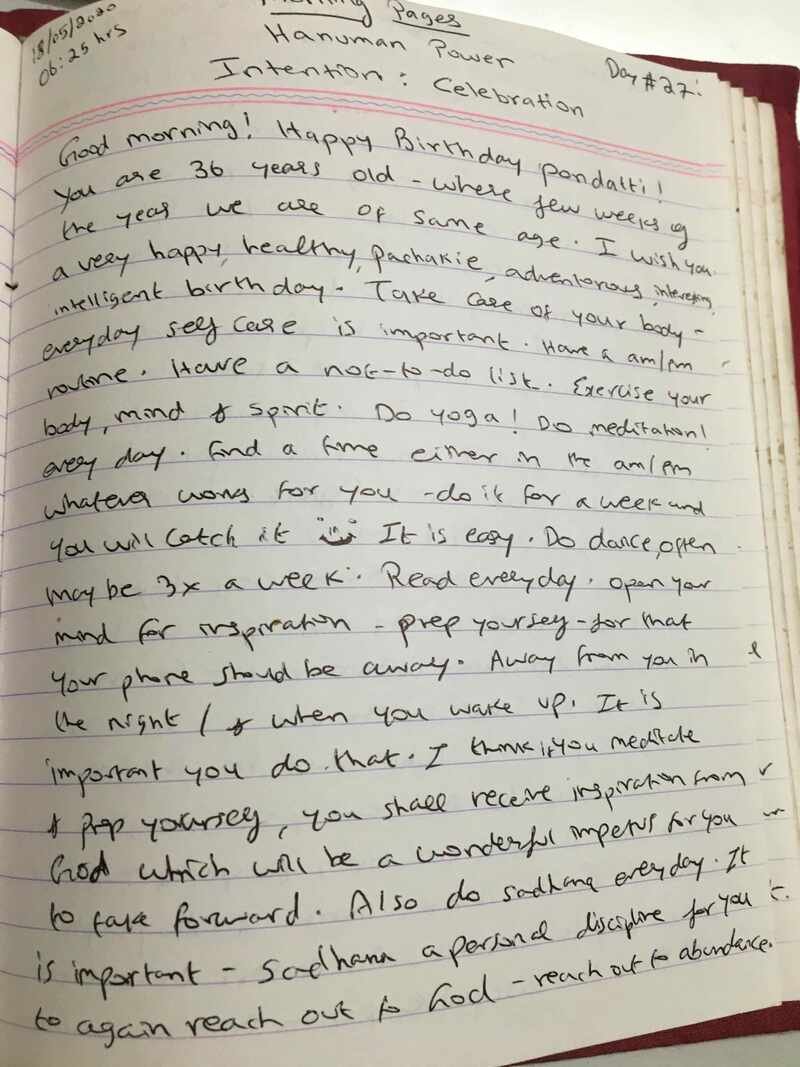 18/05/2020
06:25 hrs
Morning Pages
Hanuman Power
Day #27:
Intention: Celebration
Good morning! Happy Birthday pondatti!
You are 36 years old - where few weeks of
the year we are of same age. I wish you
a very happy, healthy, pachakie, adventorous, interesting,
intelligent birthday. Take care of your body -
everyday self care is important. Have a am/pm
routine. Have a not-to-do list. Exercise your
body, mind & spirit. Do yoga! Do meditation!
every day. Find a time either in the am/pm
whatever works for you - do it for a week and
you will catch it It is easy. Do dance, often
may be 3x a week. Read everyday. Open your
mind for inspiration - prep yourself - for that
your phone should be away. Away from you in
the night / & when you wake up. It is
important you do that. I think if you meditate
& prep yourself, you shall receive inspiration from
God which will be a wonderful impetus for you
to take forward. Also do sadhana everyday. It
is important - Sadhana a personal discipline for you
to again reach out to God - reach out to abundance.